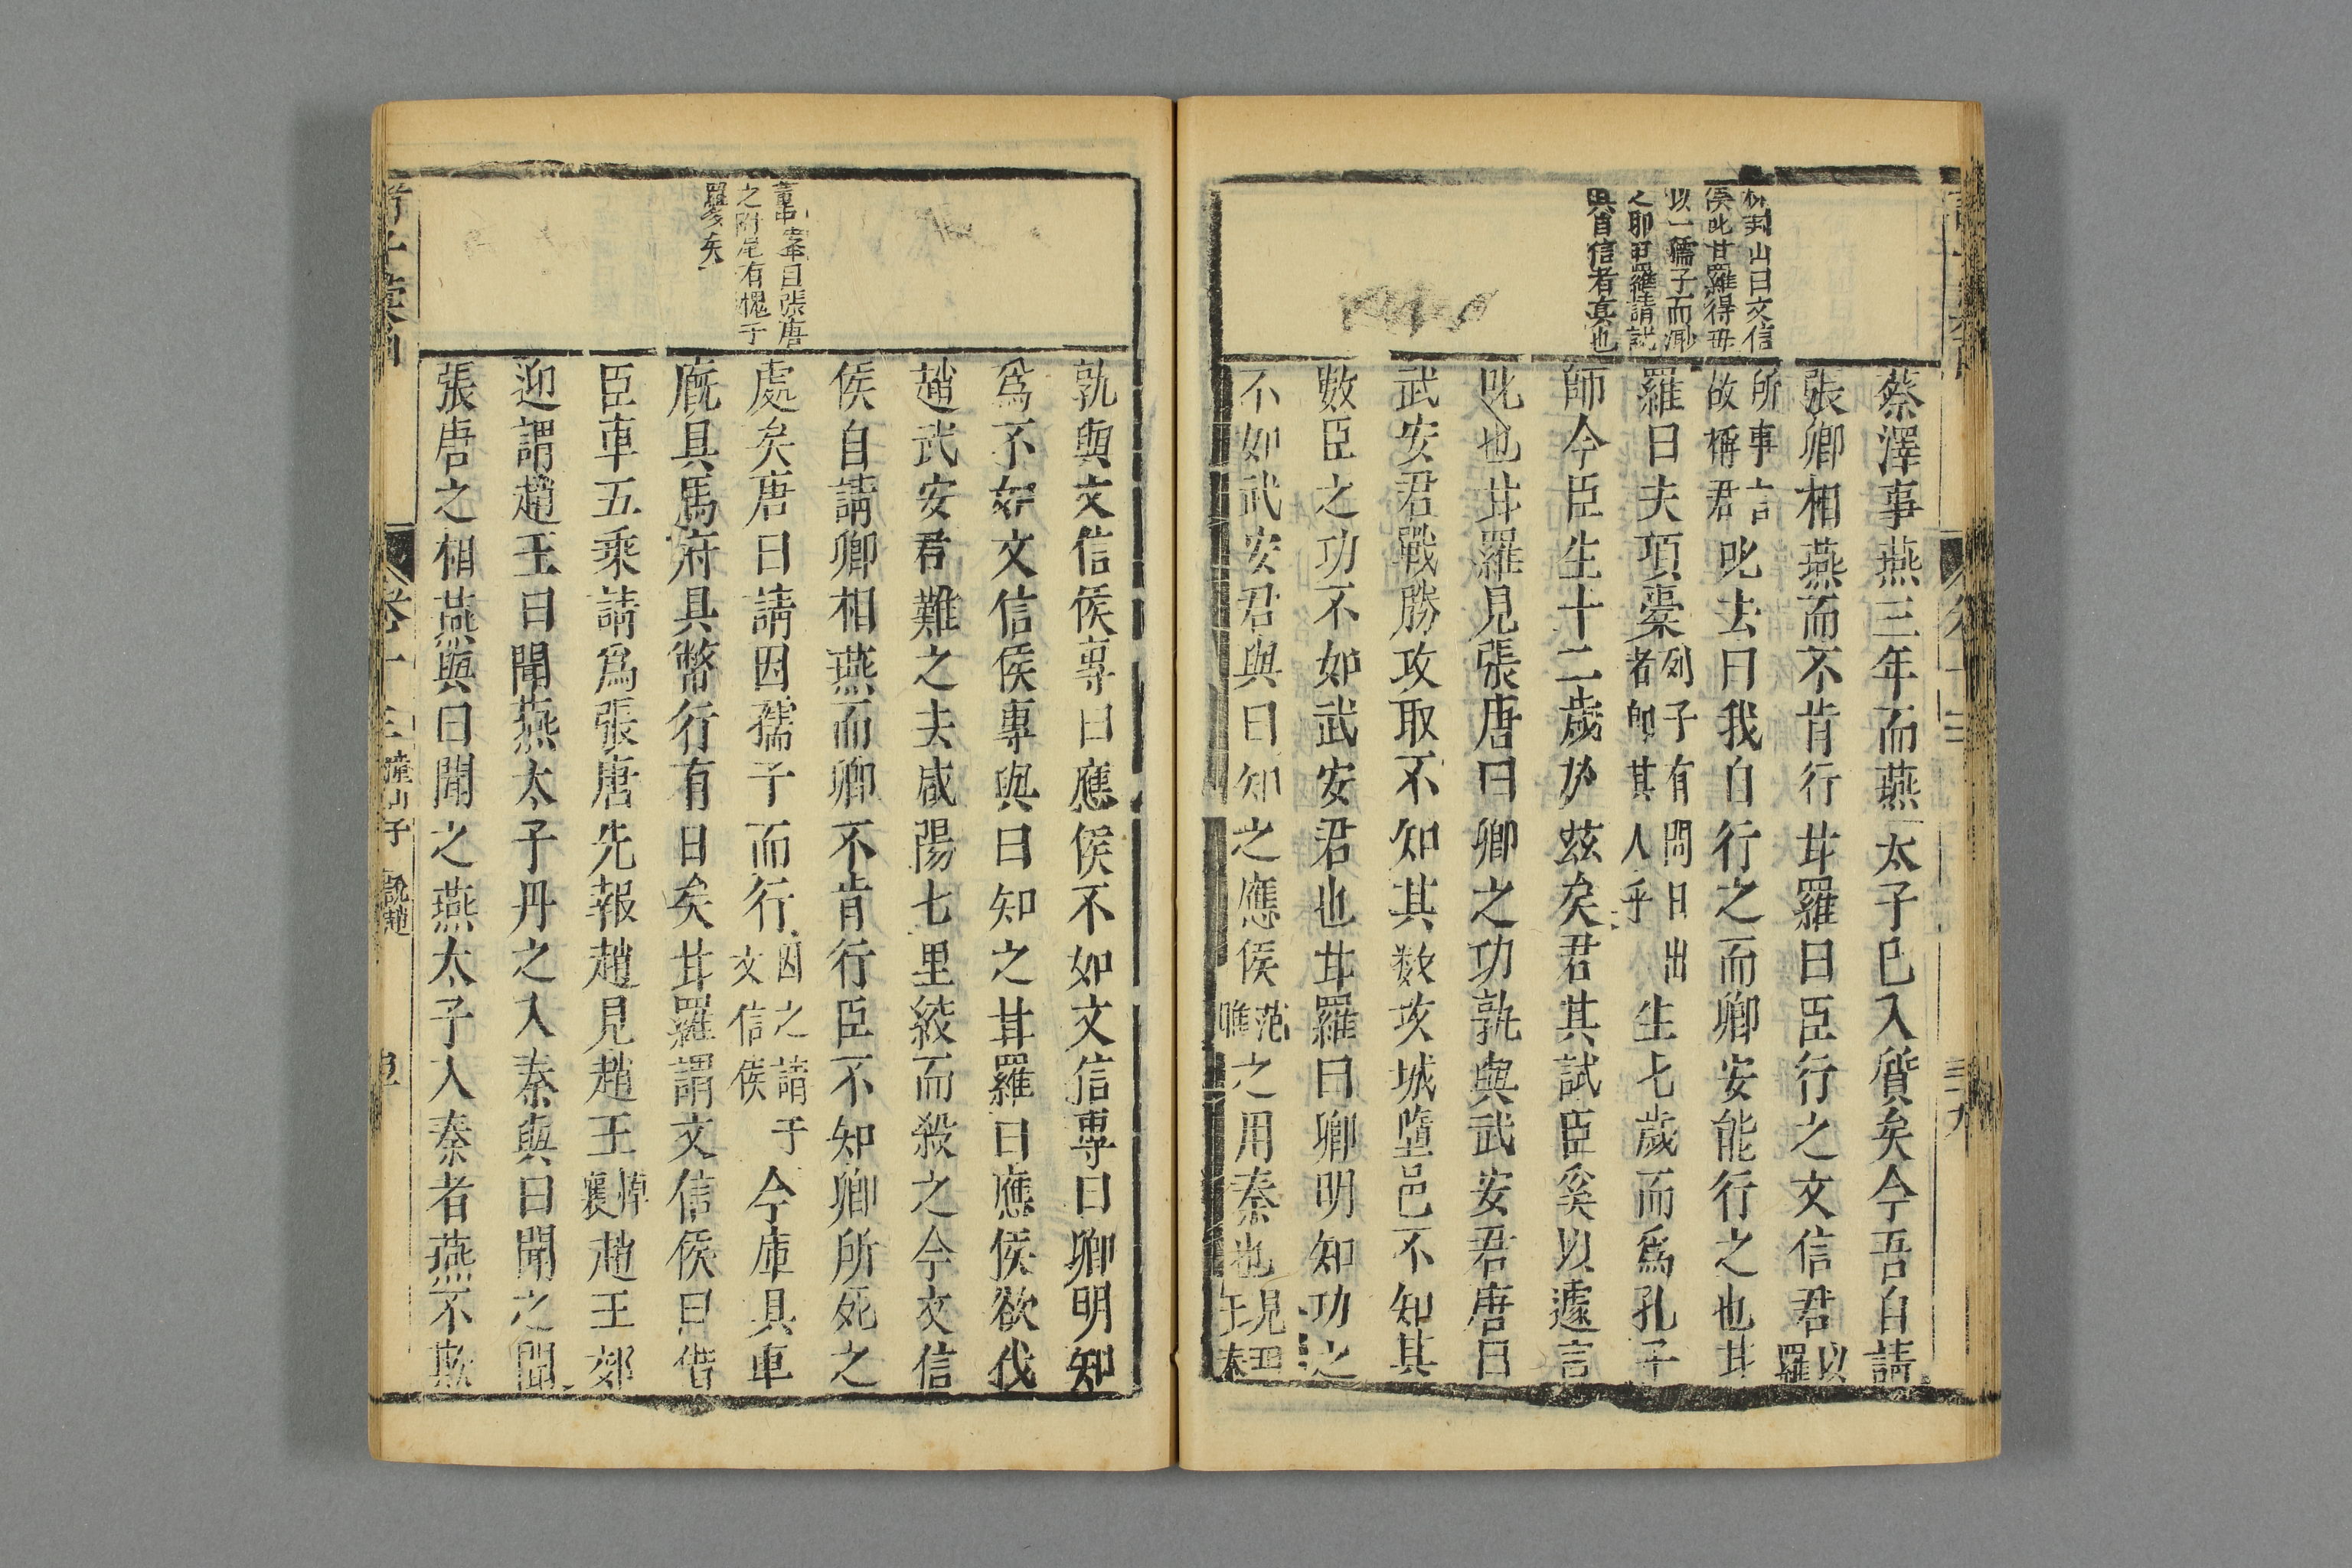 山曰文信
侯叱甘羅得毋
以一孺子而渺
之耶甲羅請試
與自信者真也
蔡澤事燕三年而燕太子已入質矣今吾自請
張卿相燕而不肯行甘羅曰臣行之文信君以羅
所事言故稱君叱去曰我自行之而卿安能行之也甘
羅曰夫項橐列子有問日出者師其人乎生七歲而爲孔子
師今臣生十二歲於茲矣君其試臣奚以遽言
叱也甘羅見張唐曰卿之功孰與武安君唐曰
武安君戰勝攻取不知其數攻城墮邑不知其
數臣之功不如武安君也甘羅曰卿明知功之
不如武安君與曰知之應侯范雎之用秦也
孰與文信侯專曰應侯不如文信專曰卿明知
爲不如文信侯專與曰知之甘羅曰應侯欲伐
趙武安君難之去咸陽七里絞而殺之今文信
侯自請卿相燕而卿不肯行臣不知卿所死之
自張唐
之附尾有愧于
羅多矣
處矣唐曰請因孺子而行因之請于文信侯今庫具車
廐具馬府具幣行有日矣甘羅謂文信侯曰借
臣車五乘請爲張唐先報趙見趙王悼襄趙王郊
迎謂趙王曰聞燕太子丹之入秦與曰聞之聞
張唐之相燕與曰聞之燕太子入秦者燕不欺
卷十三 潼山子 說趙